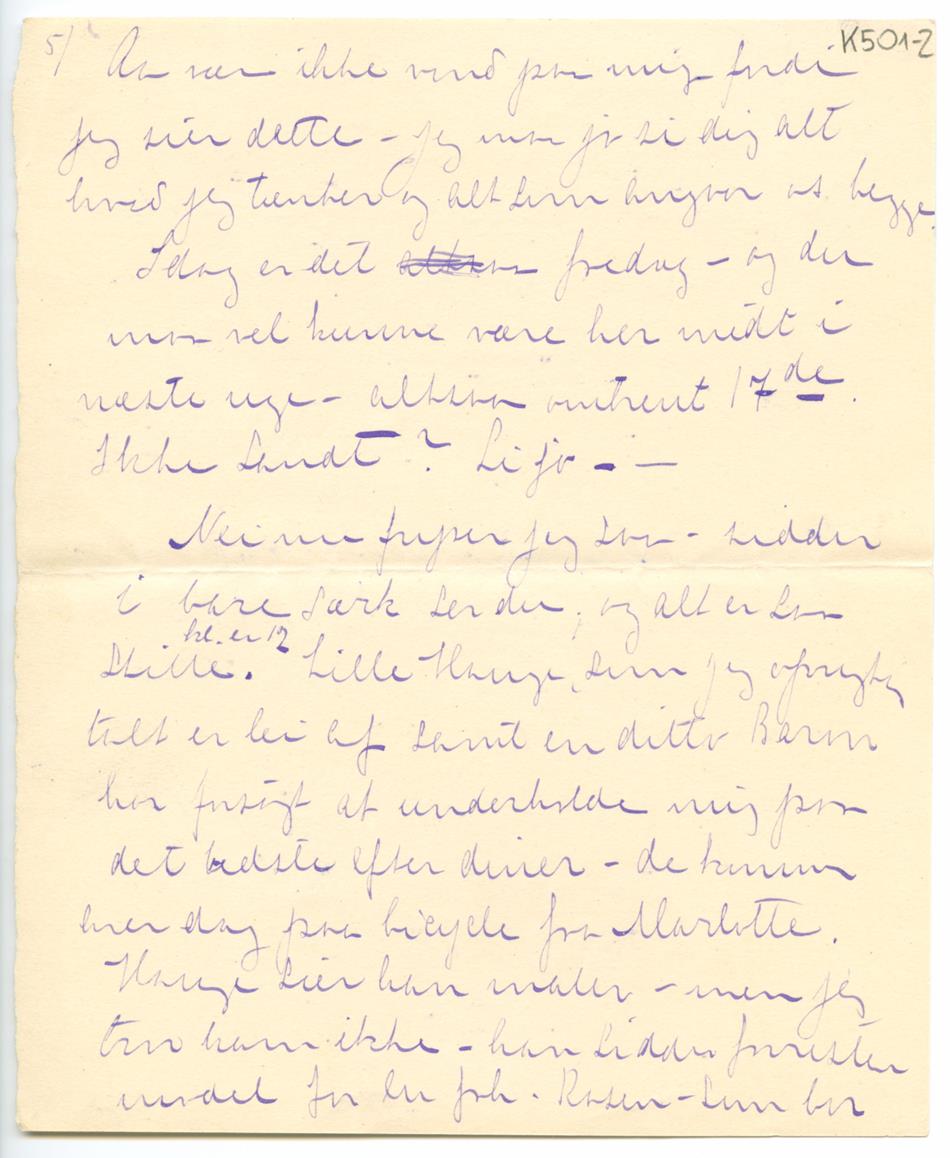 5/ K501-2
Aa vær ikke vond paa mig fordi
jeg sier dette – jeg maa jo si dig alt
hvad jeg tænker og alt som angaar os begge.
Idag er det altsaa fredag – og du
maa vel kunne være her midt i
næste uge – altsaa omtrent 17de.
Ikke Sandt? Si jo – —
Nei nu fryser jeg saa – sidder
i bare Særk ser du, og alt er saa
kl. er 12
Stille. Lille Hauge, som jeg oprigtig
talt er lei af samt en ditto Baron
har forsögt at underholde mig paa
det bedste efter diner – de kommer
hver dag paa bicycle fra Marlotte.
Hauge Sier han maler – men jeg
tror ham ikke – han Sidder forresten
model for en frk. Rosen – Som bor